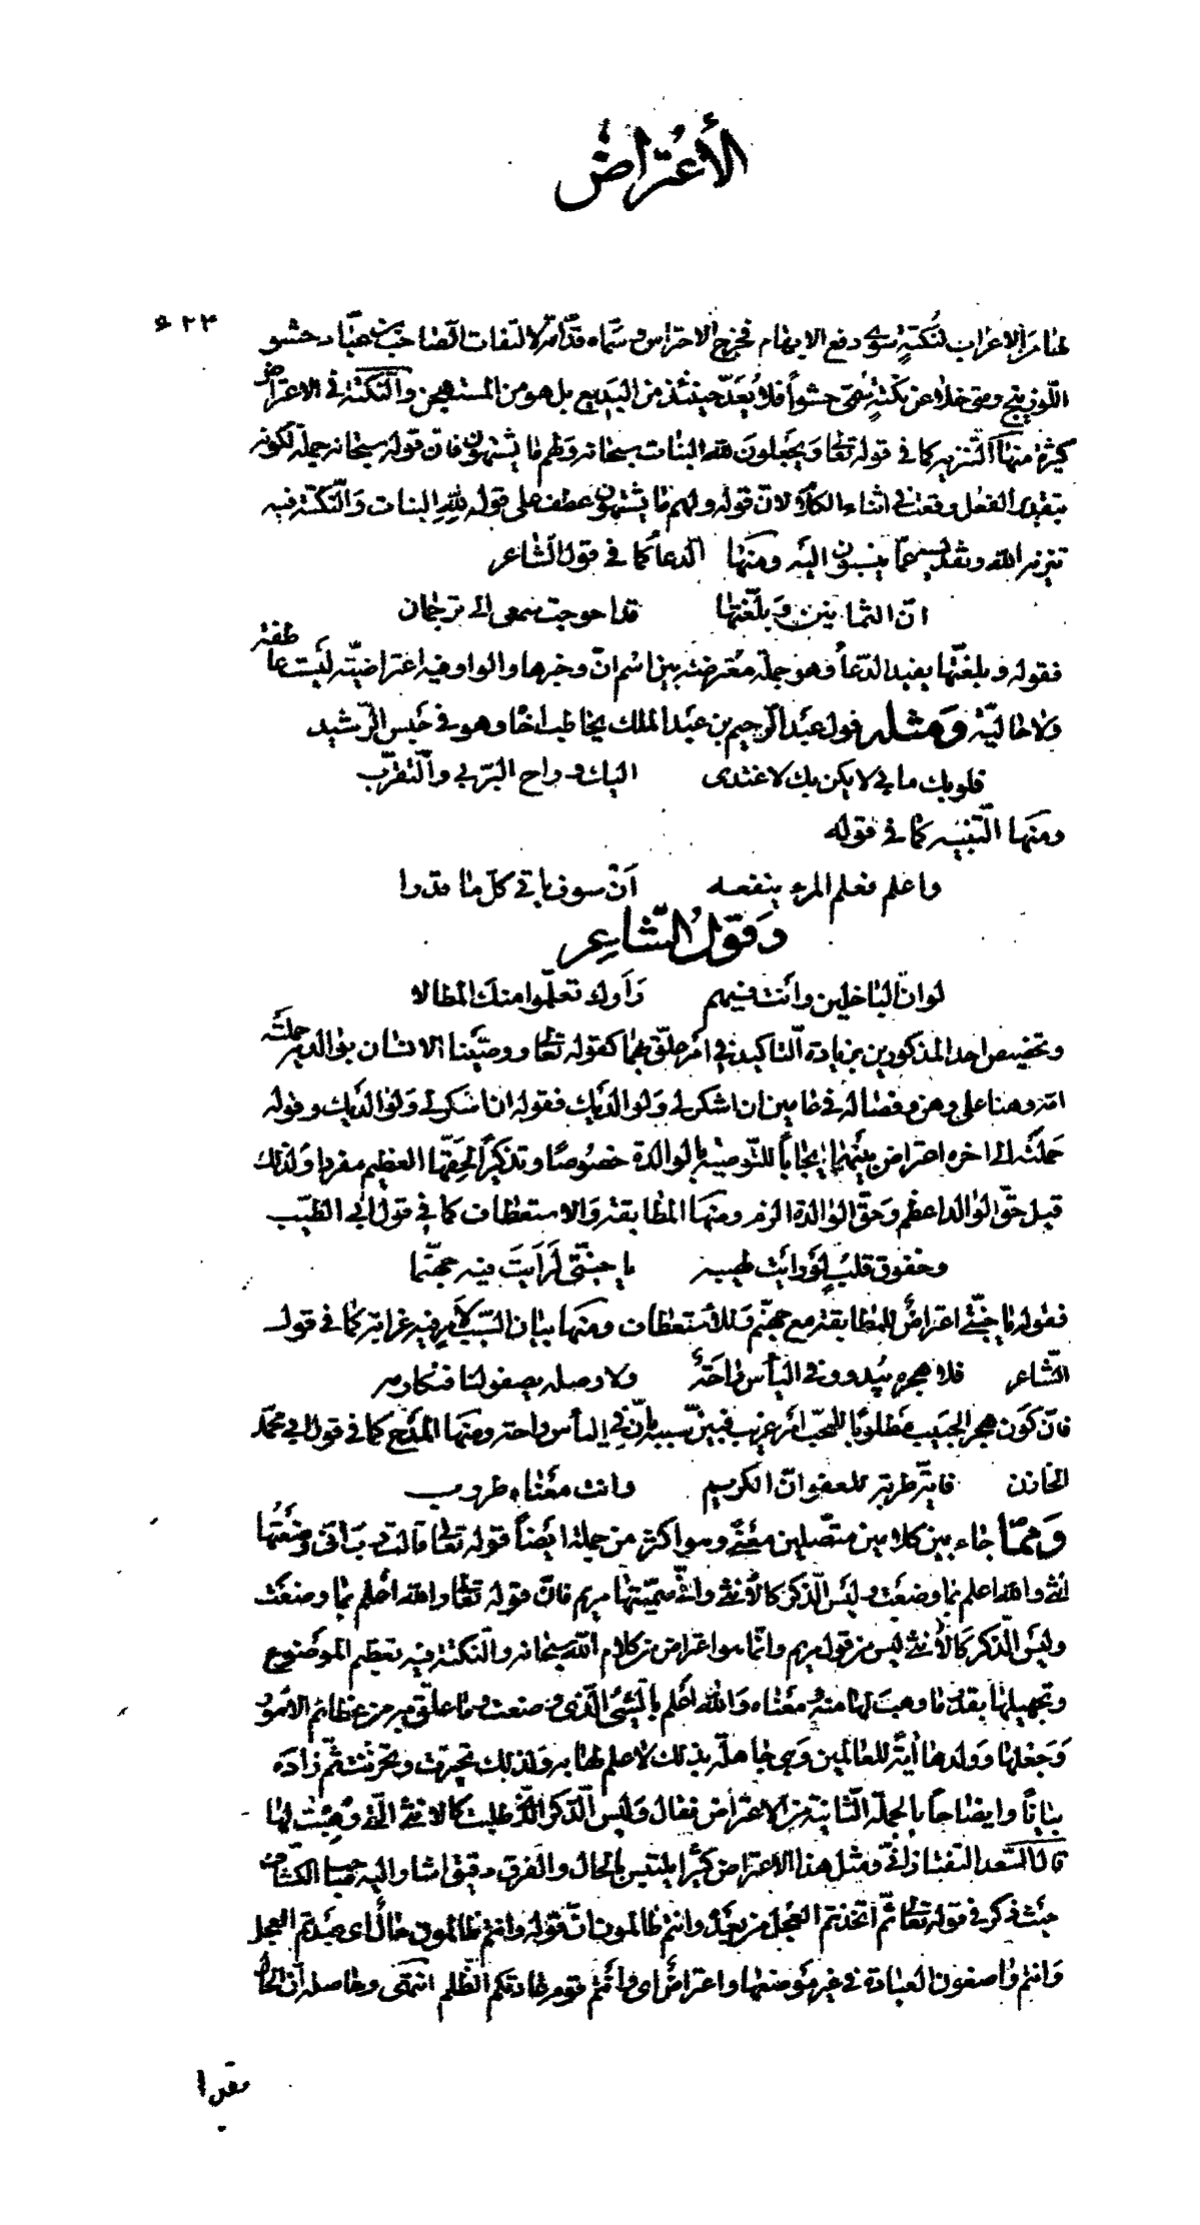 الأعتراض
٦٢٣
لها من الاعراب لنكتةٍ سوى دفع الايهام فخرج الاحتراس وسماه قدامة الالتفات الصاحب بن عباد حشو
اللوزينج ومتى خلا عن نكتةٍ سمّى حشواً فلا يُعَدّ حينئذ من البديع بل هو من المستهجن والنكتة فى الاعتراض
كثيرة منها التنزيه كما في قوله تعالى ويجعلون لله البنات سبحانه ولهم ما يشتهون فان قوله سبحانه جملة لكونه
بتقدير الفعل وقعت في اثناء الكلام لانّ قوله ولهم ما يشتهون عطف على قوله للهِ البنات والنكتة فيه
تنزيه الله وتقديسه عمّا ينسبون اليه ومنها الدعاء كما في قول الشاعر
انّ الثمانين وبلّغتها قد احوجت سمعى الى ترجمان
فقوله وبلغتها يفيد الدّعاء وهو جملة معترضة بين اسم انّ وخبرها والواو فيه اعتراضيّة ليست عاطفة
ولا حاليّة ومثله قول عبد الرحيم بن عبد الملك يخاطب اخاه وهو في حبس الرّشيد
فلو بك ما بي لا يكن بك لاغتدى اليك وراح البرّ بي والتّقرّب
ومنها التّنبيه كما في قوله
واعلم فعلم المرء ينفعه أنْ سوف ياتي كلّ ما قدرا
وقول الشاعر
لو انّ الباخلين وانت فيهم رأوك تعلّموا منك المطالا
وتخصيص احد المذكورين بزيادة التاكيد في امر علّق بهما كقوله تعالى ووصّينا الانسان بوالديه حملته
امّه وهنا على وهن وفصاله في عامين ان اشكر لي ولوالديك فقوله ان اشكر لي ولوالديك وقوله
حملته الى اخره اعتراض بينهما ايجاباً للتّوصية بالوالدة خصوصًا وتذكيراً لحقّها العظيم مفردا ولذلك
قيل حقّ الوالد اعظم وحقّ الوالدة الزم ومنها المطابقة والاستعطاف كما في قول ابى الطّيّب
وخفوق قلبٍ لو رايت لهيبه يا جنّتي لرأيت فيه جهنّما
فقوله يا جنّتي اعتراضٌ للمطابقة مع جهنّم وللأستعطاف ومنها بيان السّبب لأمر فيه غرابة كما في قول
الشّاعر فلا هجره يبدو وفي الياس راحةٌ ولا وصله يصفو لنا فنكارمه
فانّ كون هجر الحبيب مطلوبًا للمحبّ امر غريب فبيّن سببه بانّ في اليأس راحة ومنها المدح كما في قول ابي محمّد
الخازن فايّة طربة للعفو انّ الكريم وانت معناه طروب
وممّا جاء بين كلامين متصلين معنًى وهو اكثر من جملة ايضاً قوله تعالى قالت ربّ انّى وضعتُها
انثى والله اعلم بما وضعت وليس الذّكر كالأنثى وانّى سمّيتها مريم فانّ قوله تعالى والله أعلم بما وضعت
وليس الذّكر كالأنثى ليس من قول مريم وانّما هو اعتراض من كلام الله سبحانه والنكتة فيه تعظيم الموضوع
وتجهيلها بقدر ما وهب لها منه ومعناه والله أعلم بالشيئ الّذي وضعت وما علّق به من عظائم الأمور
وجعلها وولدها أيةً للعالمين وهي جاهلة بذلك لا علم لها به ولذلك تحيّرت وتحزّنت ثمّ زاده
بيانًا وايضاحاً بالجملة الثّانية من الاعتراض فقال وليس الذّكر الّذي طلبت كالانثى الّتى وُهِبَت لها
قال السّعد التفتازانيّ ومثل هذا الاعتراض كثيرا يلتبس بالحال والفرق دقيق اشار اليه صاحب الكشّاف
حيث ذكر في قوله تعالى ثمّ اتّخذتم العجل من بعده وانتم ظالمون انّ قوله وانتم ظالمون حال اى عبدتم العجل
وانتم واضعون العبادة في غير موضعها واعتراضٌ اى وانتم قوم عادتكم الظّلم انتهى وحاصله انّ الحال
مقيدا